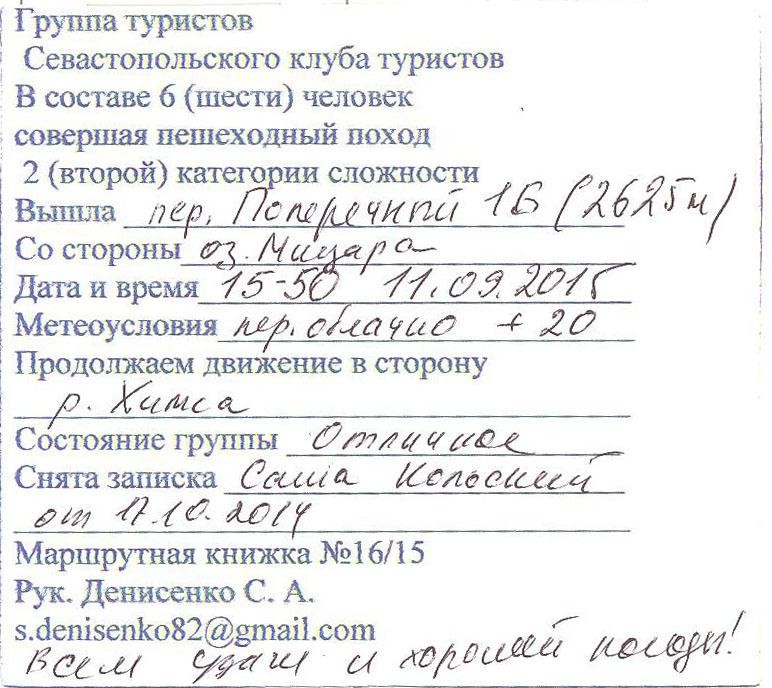 Группа туристов
Севастопольского клуба туристов
В составе 6 (шести) человек
совершая пешеходный поход
2 (второй) категории сложности
Вышла пер. Поперечный 1Б (2625м)
Со стороны оз. Мицара
Дата и время 15-50 11.09.2015
Метеоусловия пер. облачно +20
Продолжаем движение в сторону
р. Химса
Состояние группы Отличное
Снята записка Саша Кольский
от 17.10.2014
Маршрутная книжка №16/15
Рук. Денисенко С. А.
s.denisenko82@gmail.com
Всем удачи и хорошей погоды!